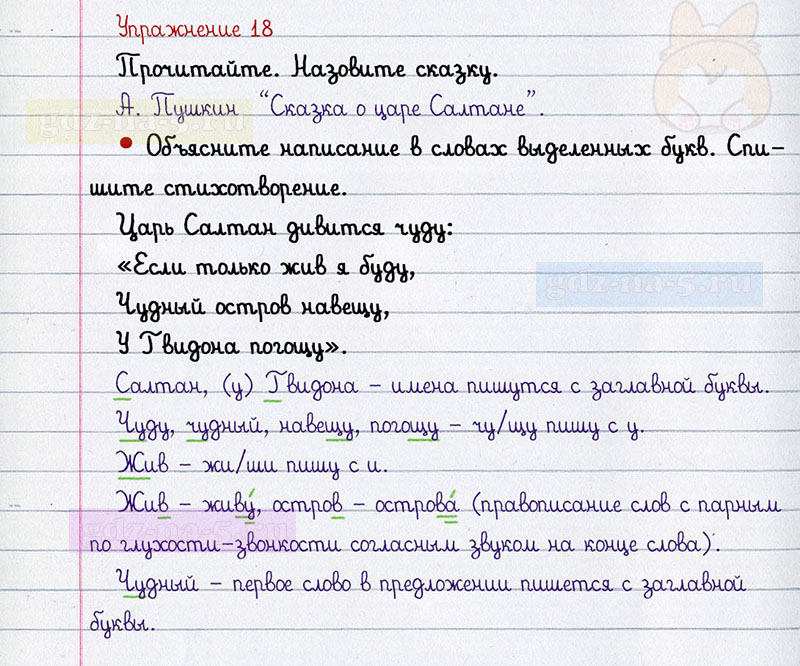 Упражнение 18
Прочитайте. Назовите сказку.
А. Пушкин "Сказка о царе Салтане".
• Объясните написание в словах выделенных букв. Спи-
шите стихотворение.
Царь Салтан дивится чуду:
«Если только жив я буду,
gdz-na-5.ru
Чудный остров навещу,
У Гвидона погощу».
Салтан, (у) Гвидона – имена пишутся с заглавной буквы.
Чуду, чудный, навещу, погощу – чу/щу пишу с у.
Жив – жи/ши пишу с и.
Жив – живу́, остров – острова́ (правописание слов с парным
по глухости-звонкости согласным звуком на конце слова).
Чудный – первое слово в предложении пишется с заглавной
буквы.